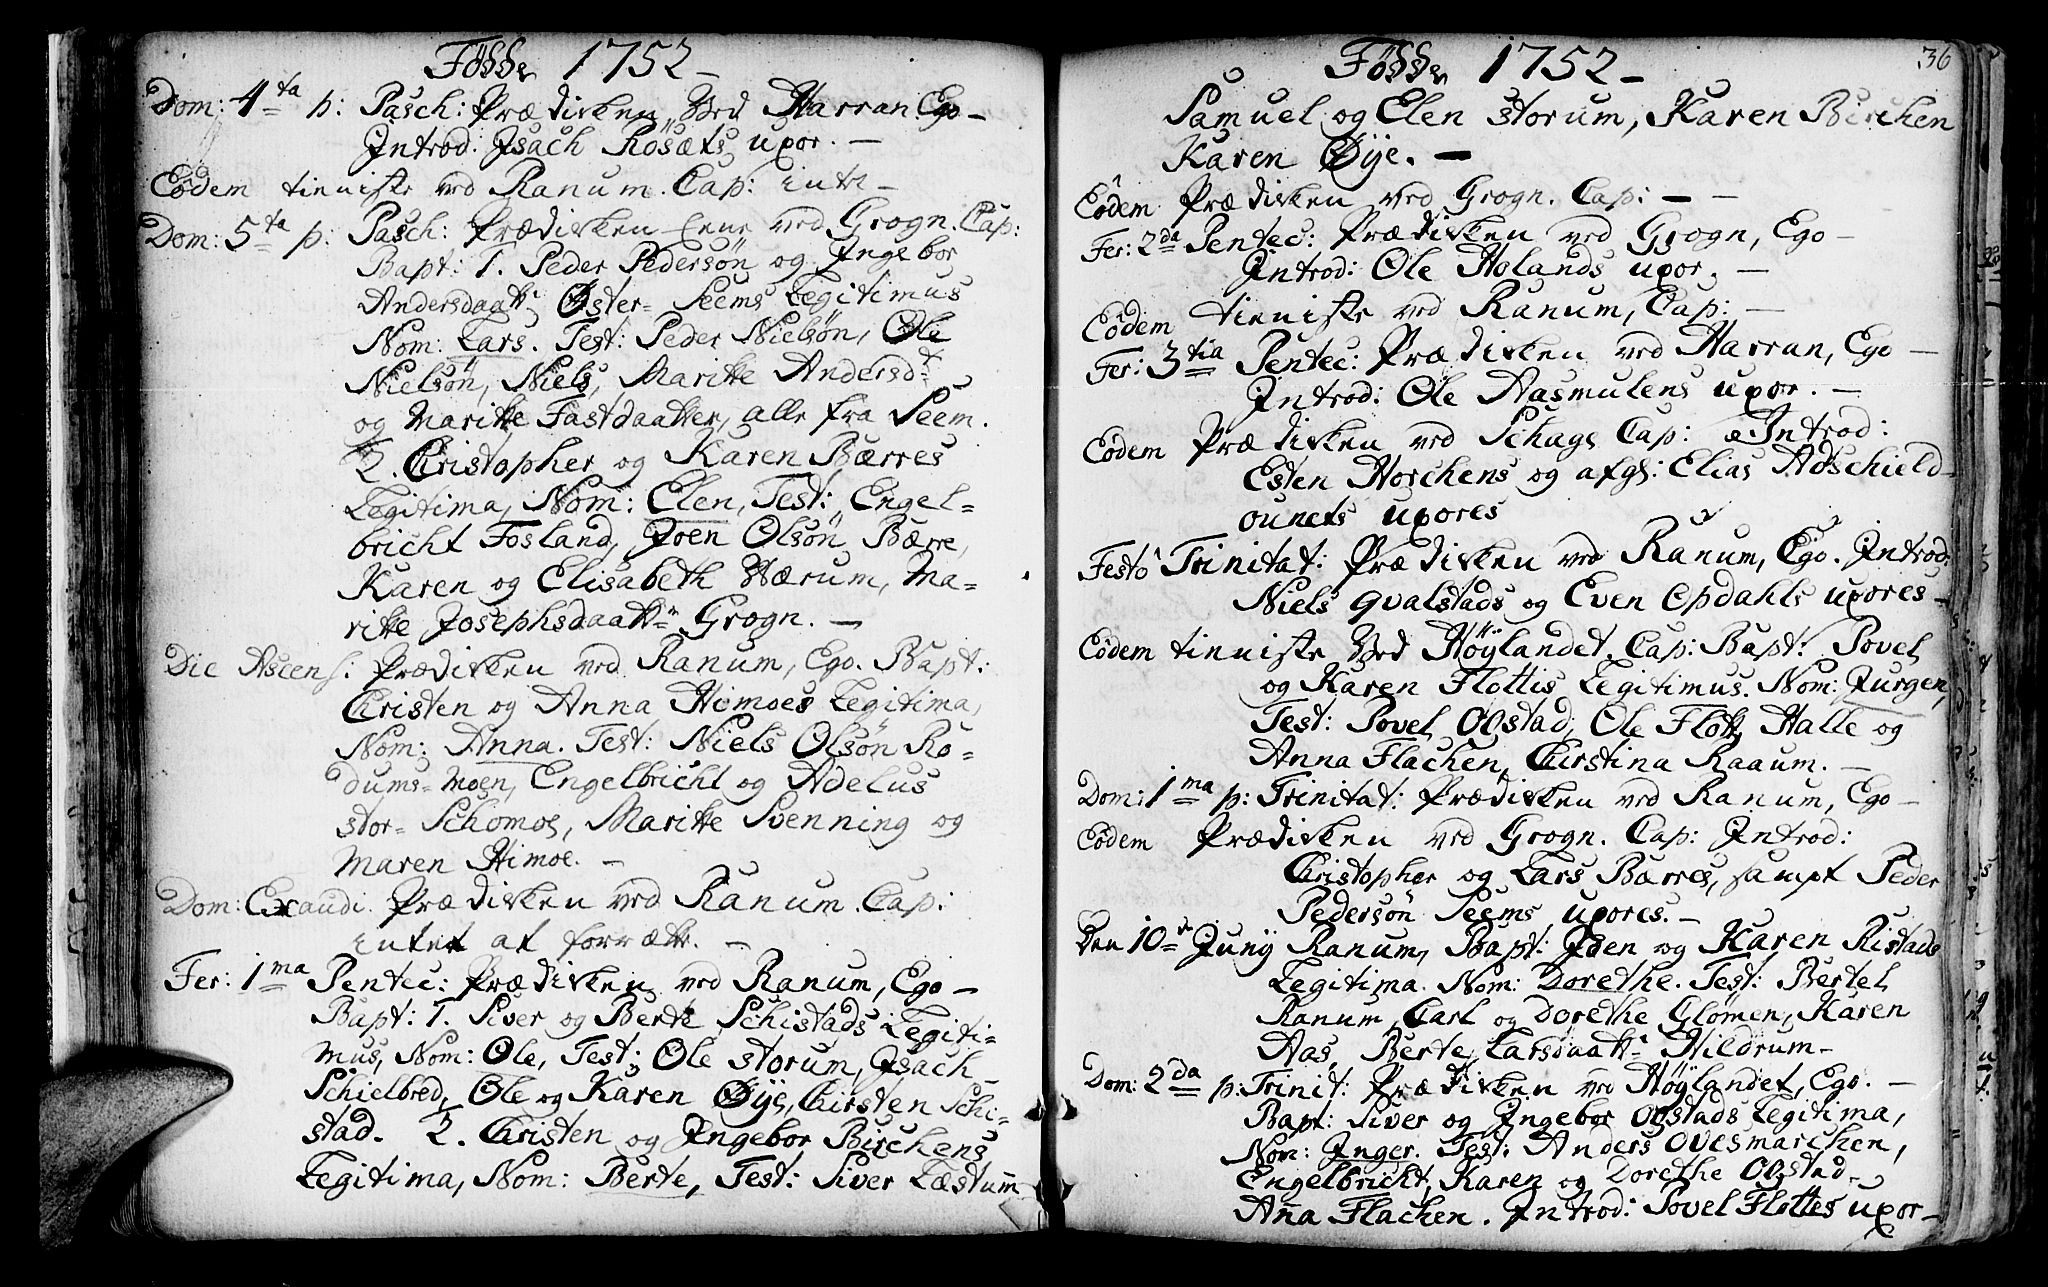 Fødde 1752
Dom: 4ta p: Pasch: Prædiken ved Harran Ego
Introd: Isach Rosæts uxor. —
Eôdem tieniste ved Ranum. Cap: intet
Dom: 5ta p: Pasch: Prædiken Eene ved Grogn. Cap:
Bapt: 1. Peder Pedersøn og Ingebor
Andersdaatt: Øster= Seems Legitimus
Nom: Lars. Test: Peder Nielsøn, Ole
Nielsøn, Niels, Maritte Andersd=
og Maritte Fastdaatter, alle fra Seem.
2. Christopher og Karen Bærres
Legitima, Nom: Elen, Test: Engel=
bricht Fosland, Joen Olsøn Bærre,
Karen og Elisabeth Hærum, Ma=
ritte Josephsdaatt= Grogn. —
Die Ascens: Prædiken ved Ranum, Ego. Bapt:
Christen og Anna Homoes Legitima,
Nom: Anna. Test: Niels Olsøn Ro=
dums= Moen, Engelbricht og Adelus
stor= Schomoe, Maritte Svenning og
Maren Himoe. —
Dom: Exaudi. Prædiken ved Ranum. Cap:
intet at forrætte. —
Fer: 1ma Pentec: Prædiken ved Ranum, Ego —
Bapt: 1. Siver og Berte Schistads Legiti=
mus, Nom: Ole, Test: Ole Storum, Isach
Schielbred, Ole og Karen Øye, Chirsten Schi=
stad. 2. Christen og Ingebor Birchens
Legitima, Nom: Berte, Test: Siver Læstum
36
Fødde 1752
Samuel og Elen Storum, Karen Birchen
Karen Øye. —
Eôdem Prædiken ved Grogn. Cap: — —
Fer: 2da Pentec: Prædiken ved Grogn, Ego —
Introd: Ole Holands uxor. —
Eôdem tieniste ved Ranum, Cap: —
Fer: 3tia Pentec: Prædiken ved Harran, Ego —
Introd: Ole Aasmulens uxor. —
Eôdem Prædiken ved Schage Cap: Introd:
Esten Horchens og afgl: Elias Adschield=
ounets uxores
Festô Trinitat: Prædiken ved Ranum, Ego. Introd:
Niels Qvalstads og Even Opdahls uxores —
Eôdem tieniste ved Høylandet. Cap: Bapt: Povel
og Karen Flottis Legitimus. Nom: Jurgen,
Test: Povel Opstad, Ole Flott, Halle og
Anna Flachen, Chirstina Raaum. —
Dom: 1ma p: Trinitat: Prædiken ved Ranum, Ego —
Eôdem Prædiken ved Grogn. Cap: Introd:
Christopher og Lars Bærres, sampt Peder
Pedersøn Seems uxores. —
Den 10de Junÿ Ranum, Bapt: Iden og Karen Ristads
Legitima. Nom: Dorethe. Test: Bertel
Ranum, Carl og Dorethe Glømen, Karen
Aas, Berte Larsdaatt= Hildrum —
Dom: 2da p: Trinit: Prædiken ved Høylandet, Ego. —
Bapt: Siver og Ingebor Opstads Legitima,
Nom: Inger. Test: Anders Ovesmarchen,
Engelbricht, Karen og Dorethe Opstad,
Anna Flachen. Introd: Povel Flottes uxor —